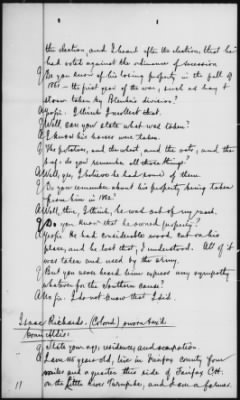 the election, and I heard after the election that he
had voted against the ordinance of secession
Q Do you know of his losing property in the fall of
1861 — the first year of the war, such as hay &
straw taken by Blenker's division?
A Yes sir. I think I recollect that.
Q Well, can you state what was taken?
A I know his horses were taken.
Q The potatoes, and the wheat, and the oats, and the
do you remember all those things?
A Well, yes, I believe he had some of them.
Q Do you remember about his property being taken
from him in 1862?
A Well, then, I think, he was out of my reach.
Q Do you know that he owned property?
A Yes sir. He had considerable wood cut on his
place, and he lost that, I understood. All of it
was taken and used by the army.
Q But you never heard him express any sympathy
whatever for the Southern cause?
A No sir. I do not know that I did.
Isaac Richards. (Colored) sworn & ex'd.
Q State your age, residence and occupation.
A I am 45 years old, live in Fairfax County four
miles and a quarter this side of Fairfax C.H.
on the Little River Turnpike, and I am a farmer.
11